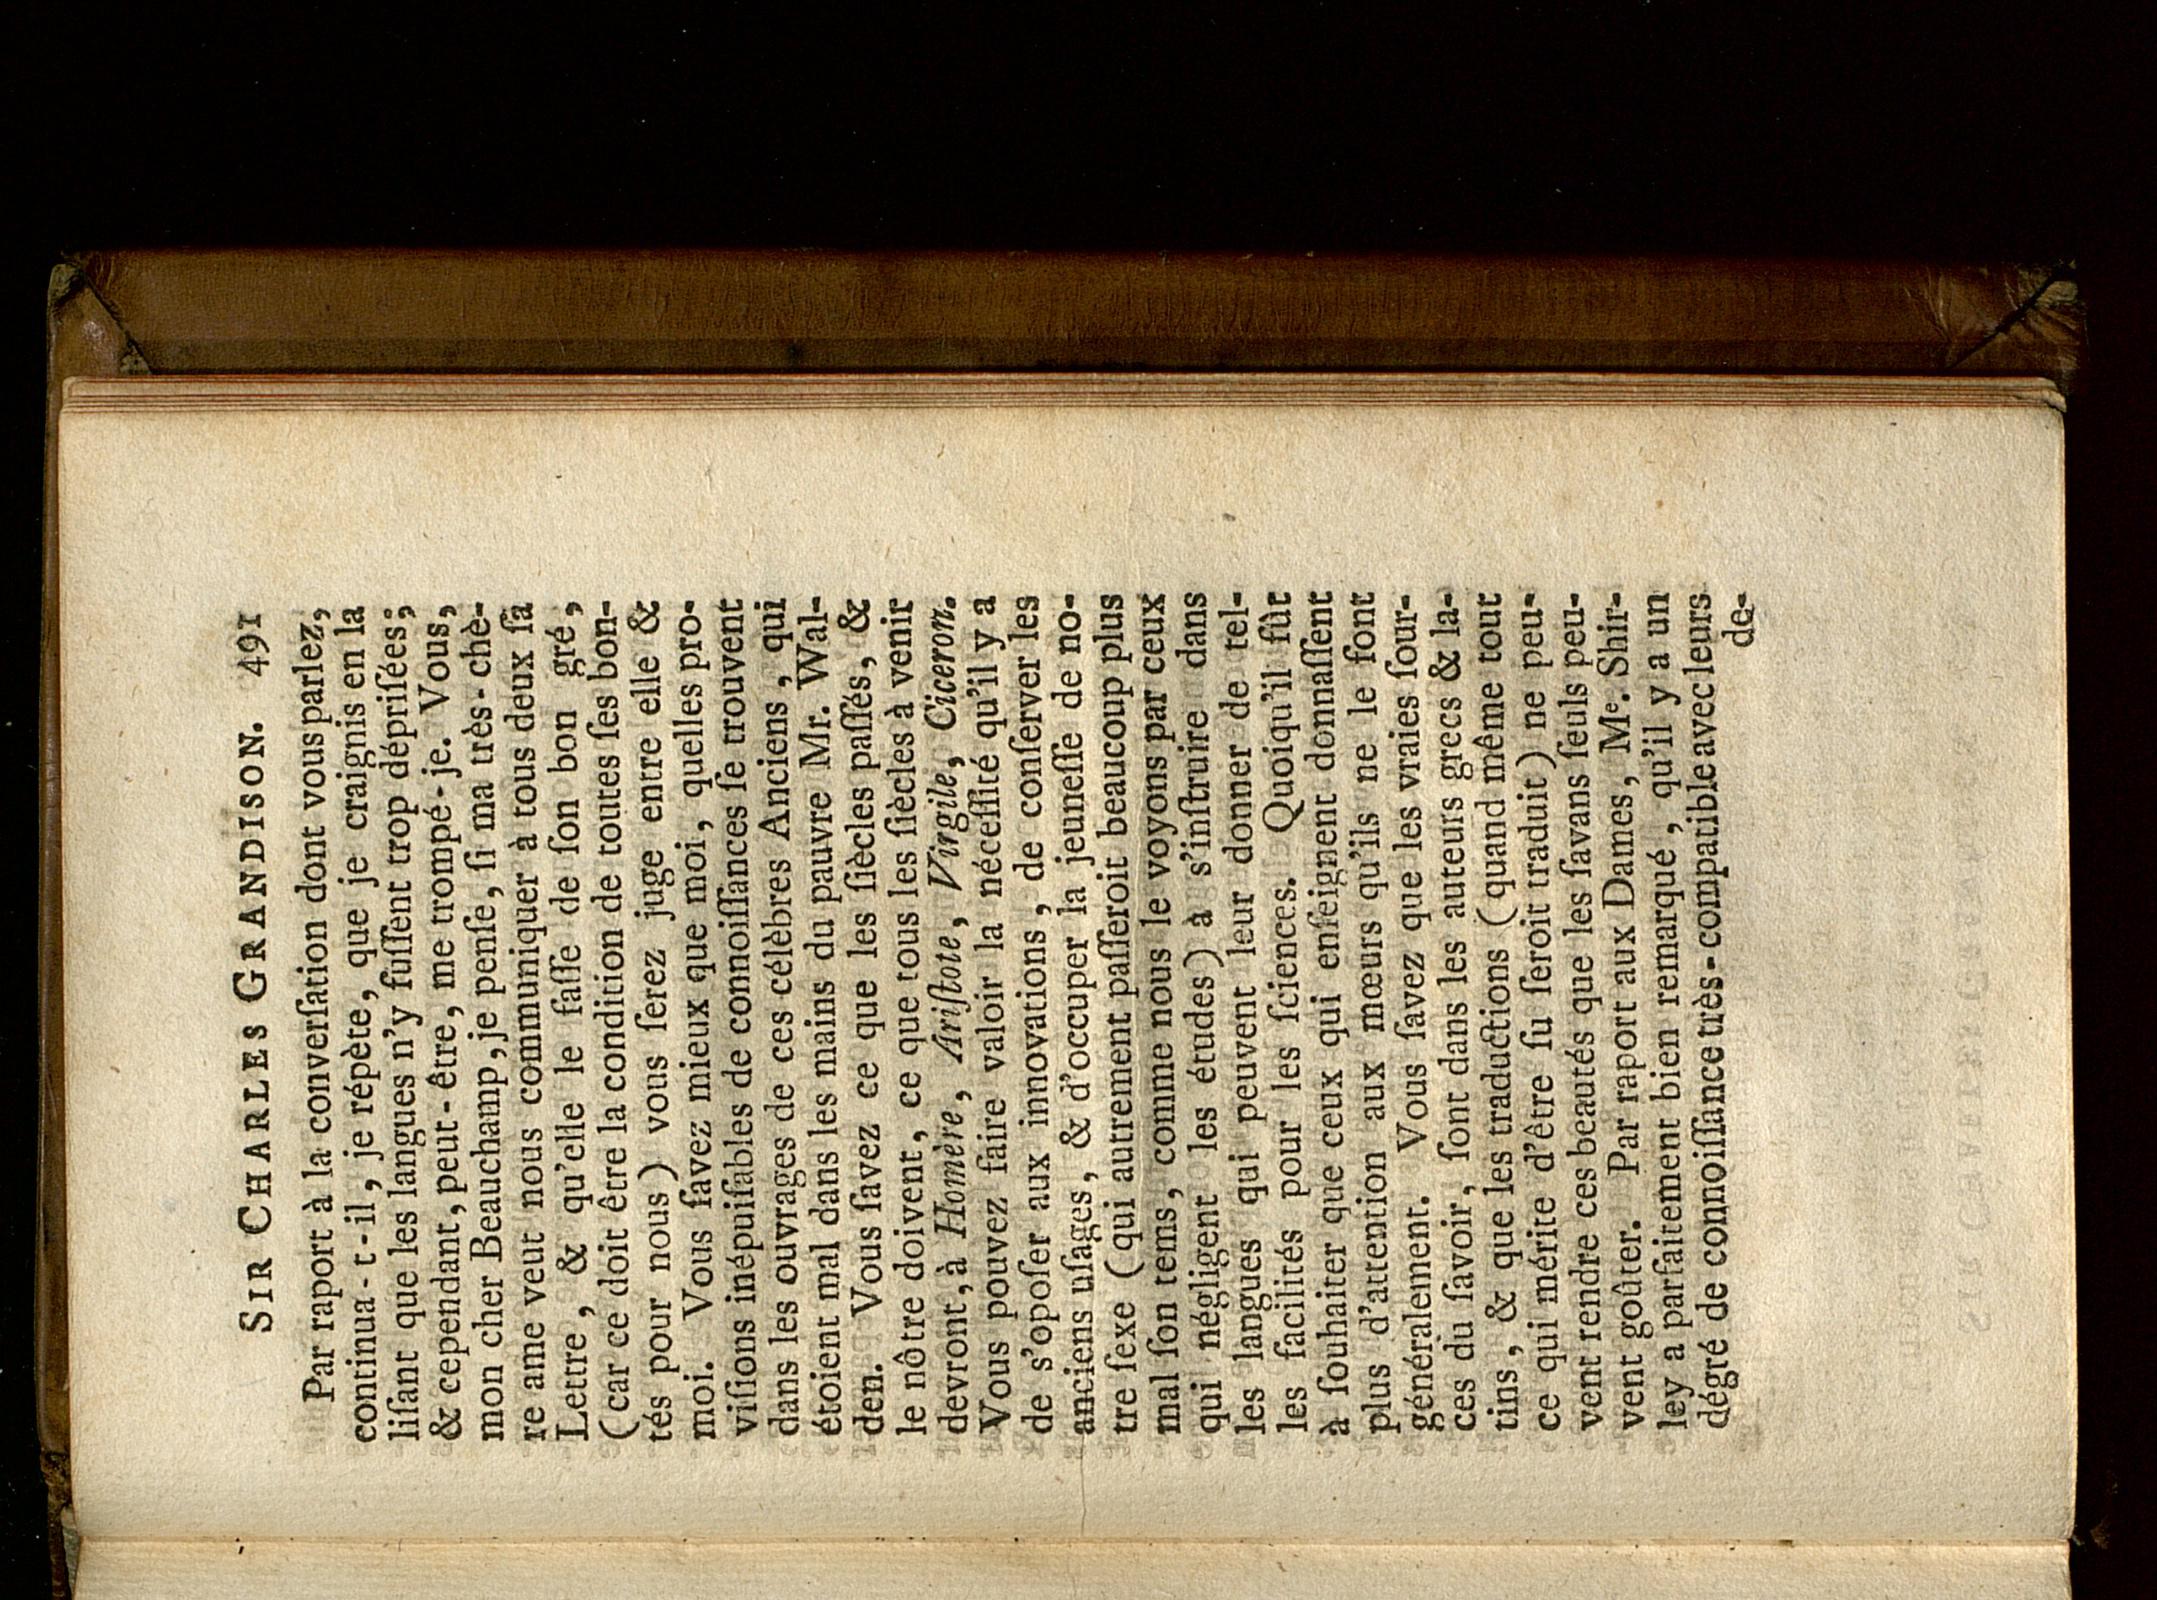 SIR CHARLES GRANDISON. 491
Par raport à la converſation dont vous parlez,
continua-t-il, je répète, que je craignis en la
liſant que les langues n'y fuſſent trop dépriſées;
& cependant, peut-être, me trompé-je. Vous,
mon cher Beauchamp, je penſe, ſi ma très-chè-
re ame veut nous communiquer à tous deux ſa
Lettre, & qu'elle le faſſe de ſon bon gré,
(car ce doit être la condition de toutes ſes bon-
tés pour nous) vous ſerez juge entre elle &
moi. Vous ſavez mieux que moi, quelles pro-
viſions inépuiſables de connoiſſances ſe trouvent
dans les ouvrages de ces célèbres Anciens, qui
étoient mal dans les mains du pauvre Mr. Wal-
den. Vous ſavez ce que les ſiècles paſſés, &
le nôtre doivent, ce que tous les ſiècles à venir
devront, à Homère, Ariſtote, Virgile, Ciceron.
Vous pouvez faire valoir la néceſſité qu'il y a
de s'opoſer aux innovations, de conſerver les
anciens uſages, & d'occuper la jeuneſſe de no-
tre ſexe (qui autrement paſſeroit beaucoup plus
mal ſon tems, comme nous le voyons par ceux
qui négligent les études) à s'inſtruire dans
les langues qui peuvent leur donner de tel-
les facilités pour les ſciences. Quoiqu'il fût
à ſouhaiter que ceux qui enſeignent donnaſſent
plus d'attention aux mœurs qu'ils ne le font
généralement. Vous ſavez que les vraies ſour-
ces du ſavoir, ſont dans les auteurs grecs & la-
tins, & que les traductions (quand même tout
ce qui mérite d'être ſu ſeroit traduit) ne peu-
vent rendre ces beautés que les ſavans ſeuls peu-
vent goûter. Par raport aux Dames, Me. Shir-
ley a parfaitement bien remarqué, qu'il y a un
dégré de connoiſſance très-compatible avec leurs
de-